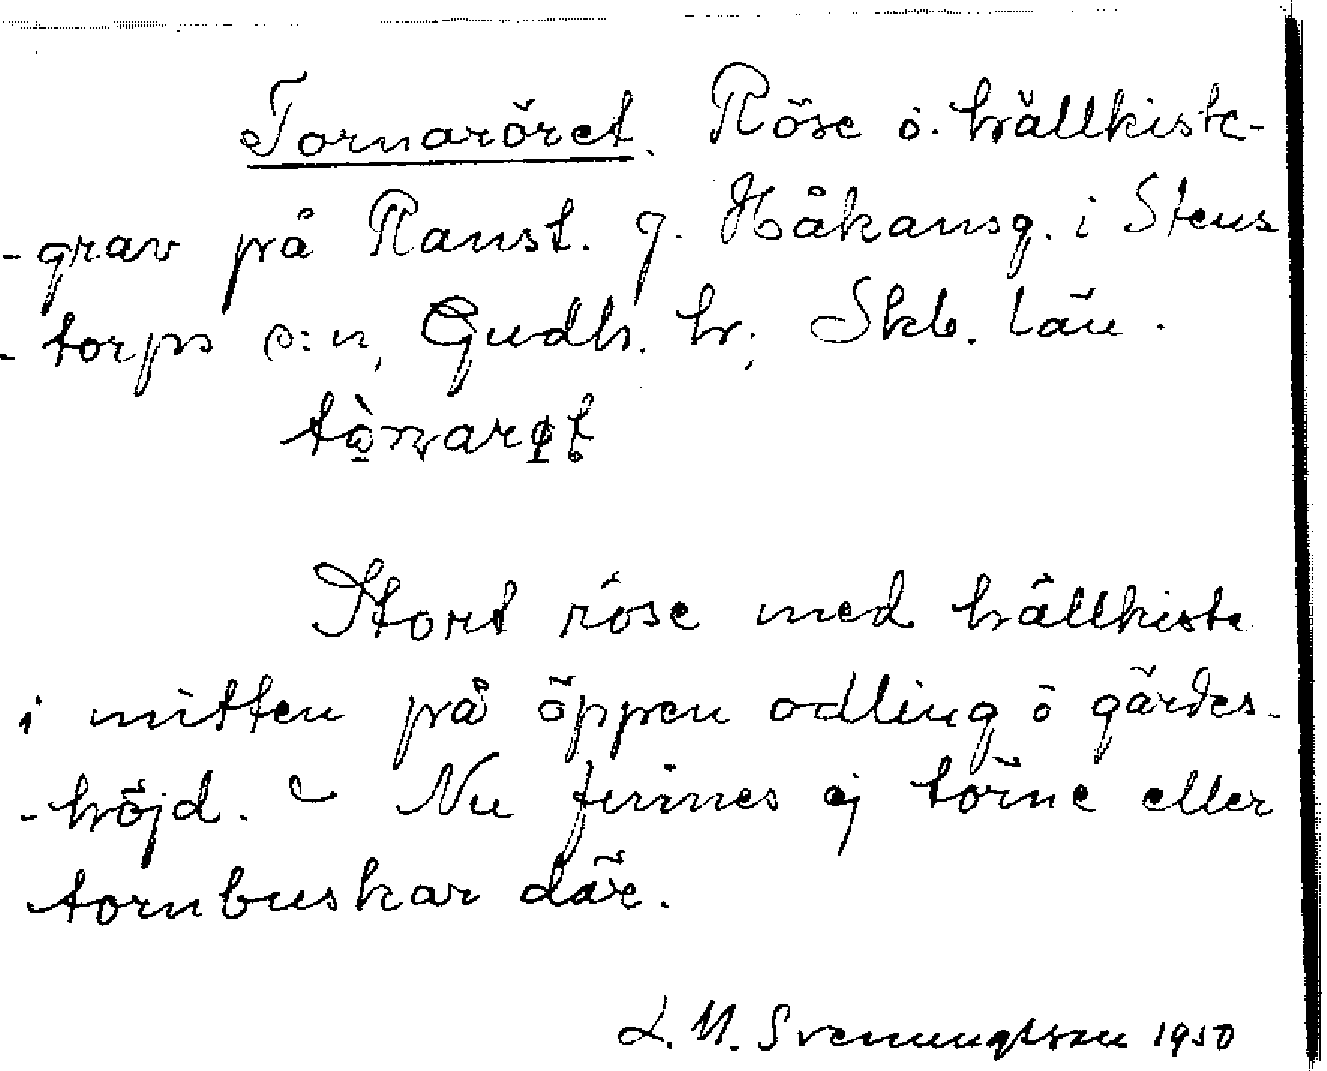 Tornaröret. Röse o. hällkiste-
-grav på Ranst. g. Håkansg. i Stens
-torps s:n, Gudh. hr; Skb. län.
Stort röse med hällkiste
i mitten på öppen odling o gärdes-
-höjd. – Nu finnes ej törne eller
tornbuskar där.
L. M. Svenungsson 1950